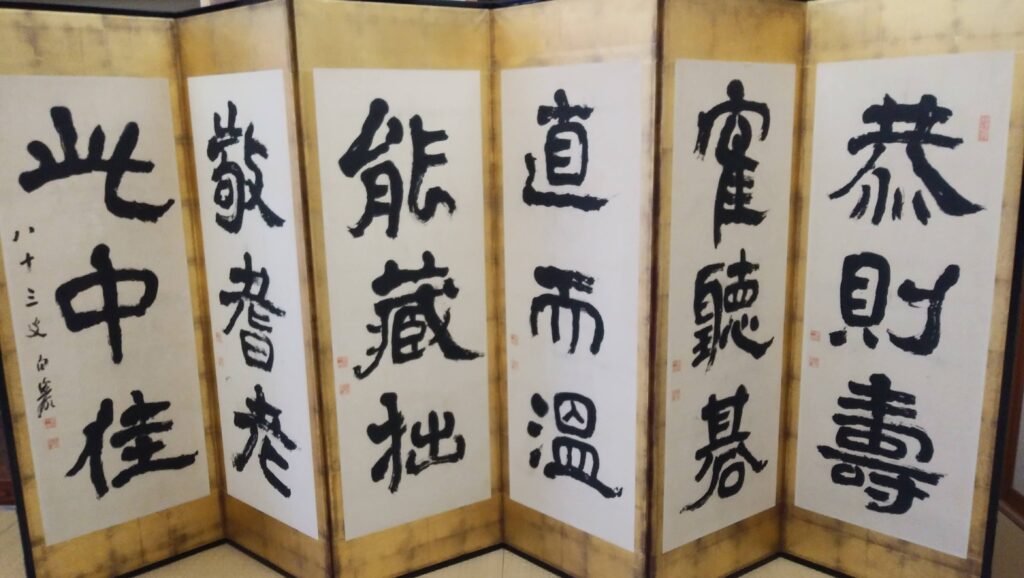 恭則壽
寉聽碁
直而溫
能藏拙
敬耆老
此中佳
八十三叟白巖